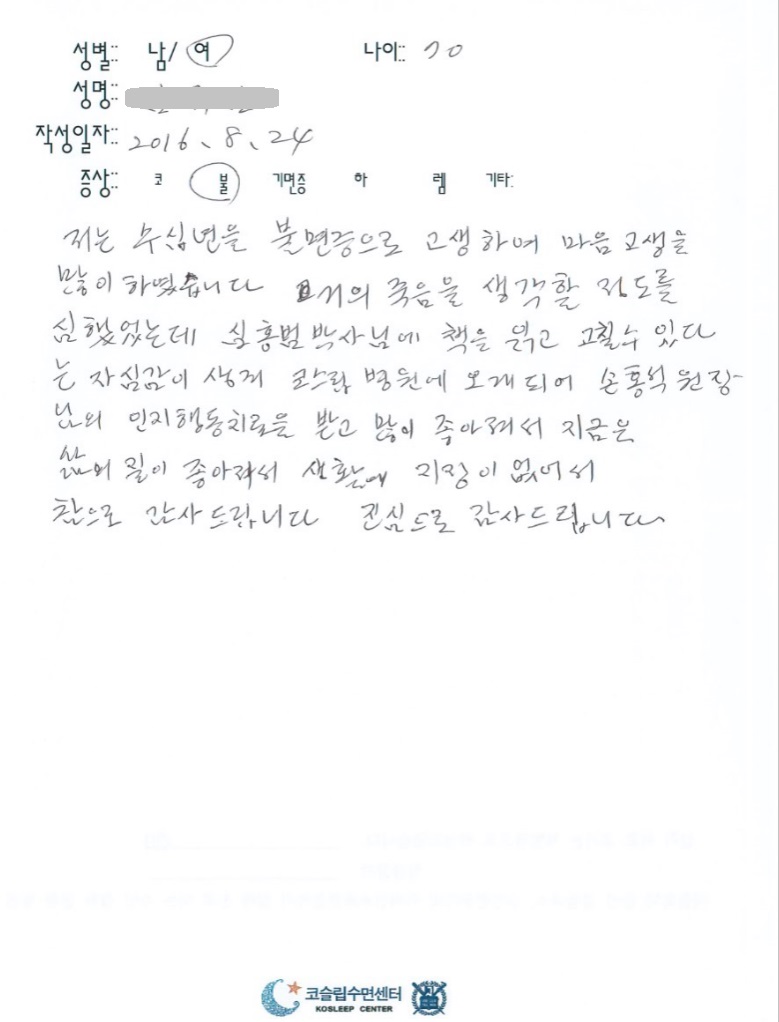 성별:: 남/ 여 나이:: 70
성명::
작성일자:: 2016、8、24
증상:: 코 불 기면증 하 렘 기타:
저는 수십년을 불면증으로 고생하여 마음고생을
많이 하였습니다 거의 죽음을 생각할 정도를
심했었는데 신홍범박사님에 책을 읽고 고칠수 있다
는 자심감이 생겨 코스립 병원에 오게되어 손홍석 원장
님의 인지행동치료을 받고 많이 좋아져서 지금은
삶의 질이 좋아져서 생활에 지장이 없어서
참으로 감사드립니다 진심으로 감사드립니다
코슬립수면센터
KOSLEEP CENTER